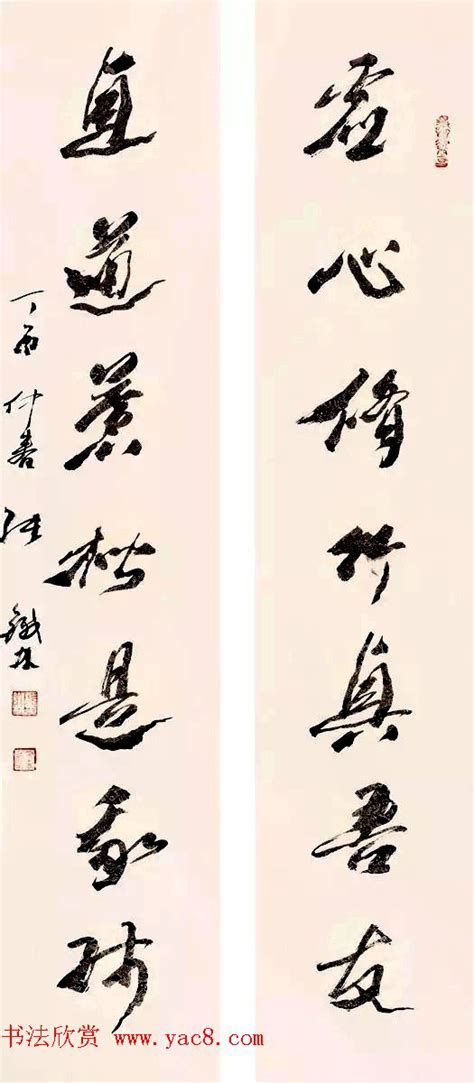 虚心修竹真吾友
直道是我师
丁酉仲春 张铁林
书法欣赏 www.yac8.com